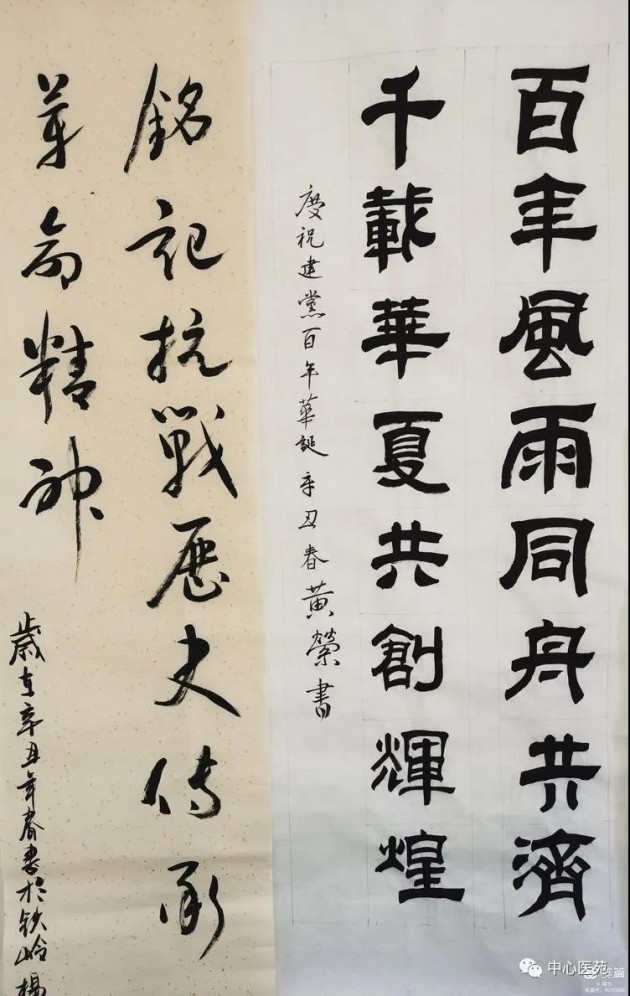 百年風雨同舟共濟
千載華夏共創輝煌
慶祝建黨百年華誕 辛丑春黄榮書
銘記抗戰歷史傳承
革命精神
歲在辛丑年春書於铁岭楊
中心医苑
美篇